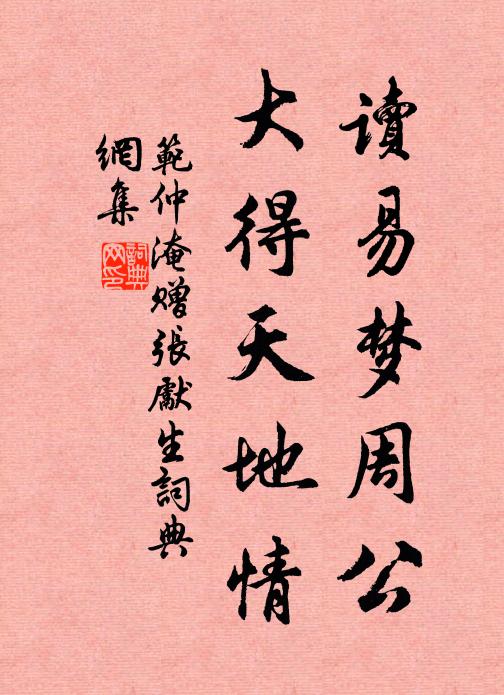 讀易梦周公
大得天地情
範仲淹赠張獻生詞典
網集
詞典
网印